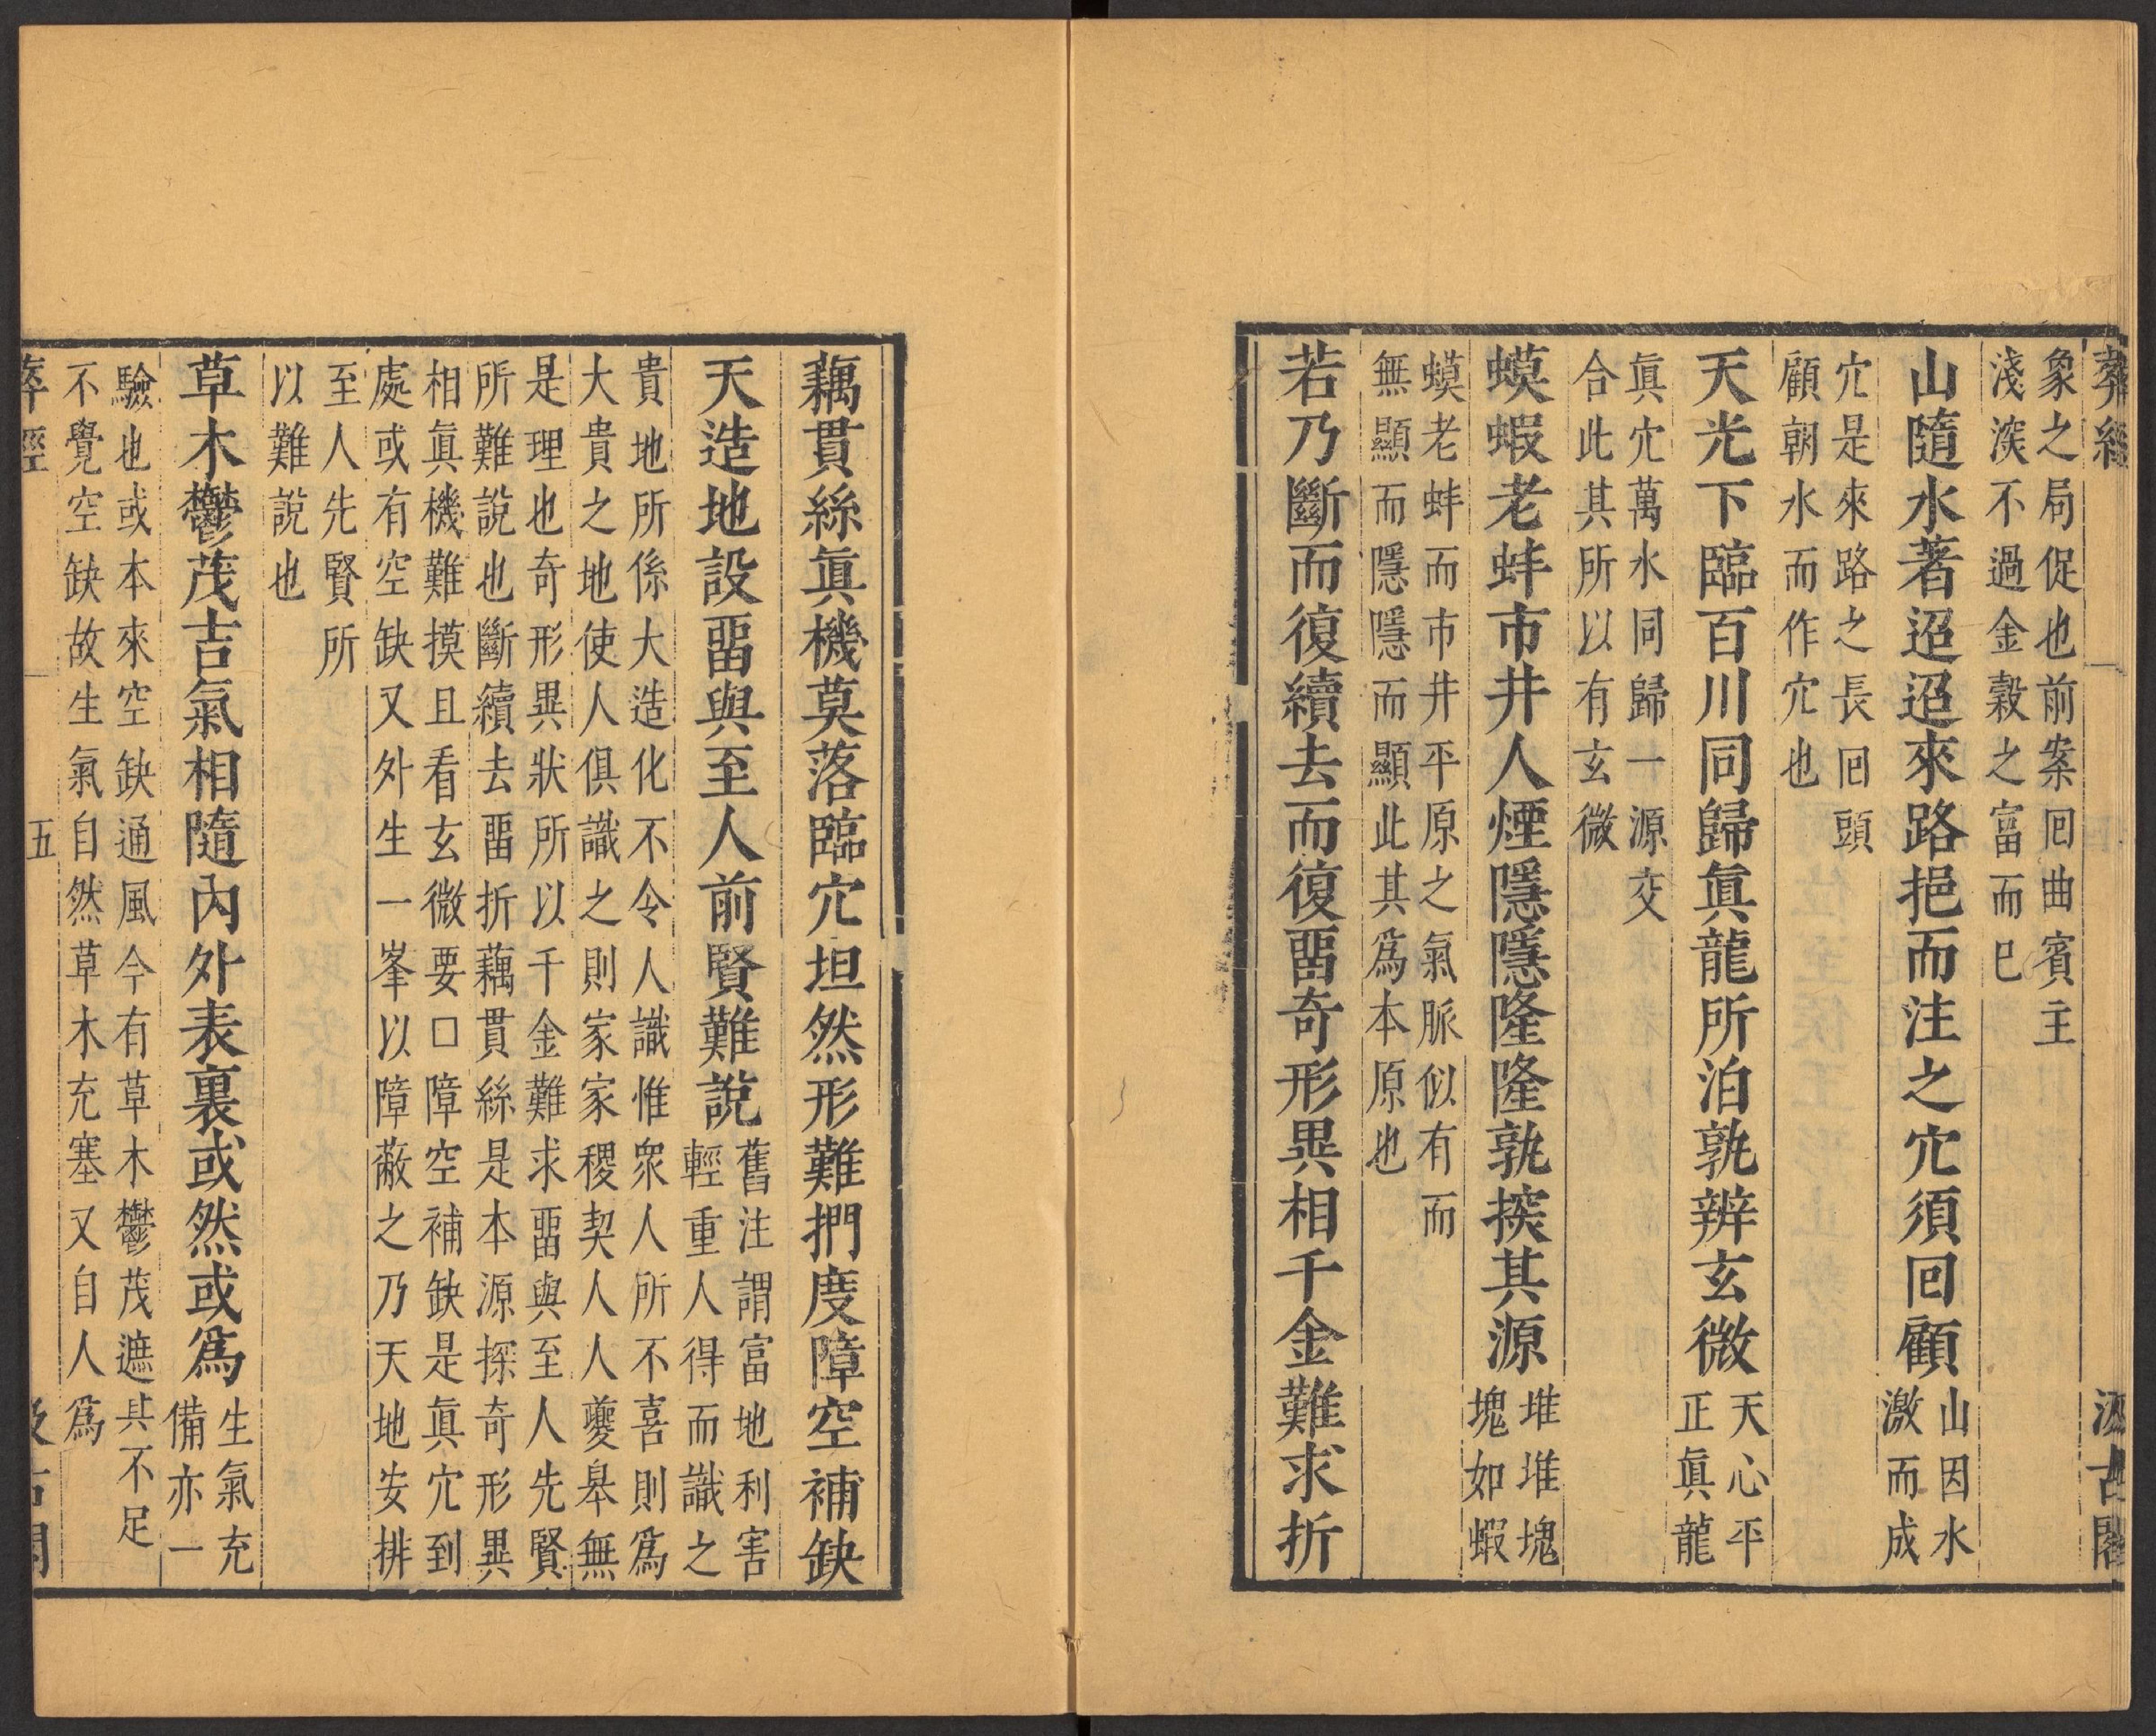 葬經
汲古閣
象之局促也前案囘曲賓主
淺深不過金穀之富而已
山隨水著迢迢來路挹而注之穴須囘顧
山因水
激而成
穴是來路之長囘頭
顧朝水而作穴也
天光下臨百川同歸眞龍所泊孰辨玄微
天心平
正眞龍
眞穴萬水同歸一源交
合此其所以有玄微
蟆蝦老蚌市井人煙隱隱隆隆孰探其源
堆堆塊
塊如蝦
蟆老蚌而市井平原之氣脈似有而
無顯而隱隱而顯此其爲本原也
若乃斷而復續去而復畱奇形異相千金難求折
藕貫絲眞機莫落臨穴坦然形難捫度障空補缺
天造地設畱與至人前賢難說
舊注謂富地利害
輕重人得而識之
貴地所係大造化不令人識惟衆人所不喜則爲
大貴之地使人俱識之則家家稷契人人夔皋無
是理也奇形異狀所以千金難求畱與至人先賢
所難說也斷續去畱折藕貫絲是本源探奇形異
相眞機難摸且看玄微要口障空補缺是眞穴到
處或有空缺又外生一峯以障蔽之乃天地安排
至人先賢所
以難說也
草木鬱茂吉氣相隨內外表裏或然或爲
生氣充
備亦一
驗也或本來空缺通風今有草木鬱茂遮其不足
不覺空缺故生氣自然草木充塞又自人爲
葬經
五
汲古閣